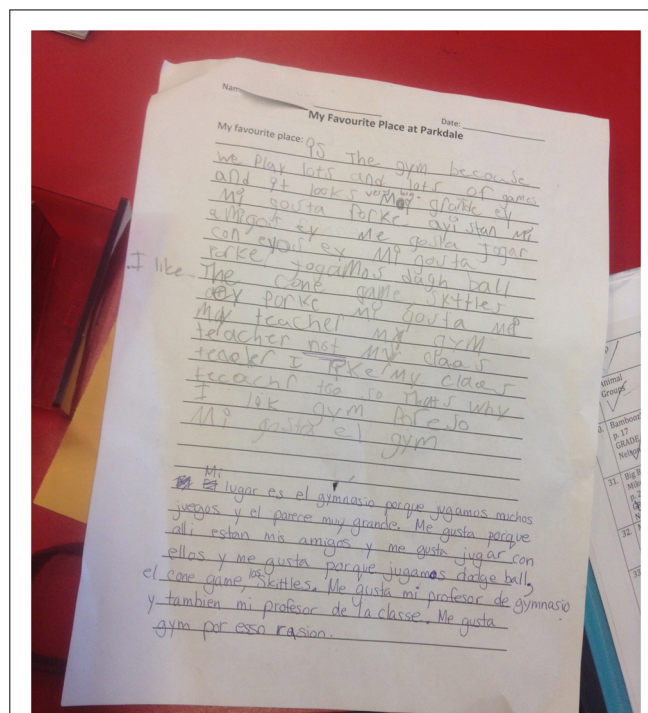 Nam
Date:
My Favourite Place at Parkdale
My favourite place: ys The gym because
we play lots and lots of games
and yt looks very big grande ey
Mi gousta Porke ayi stan Mi
amigos ey Me gosta jogar
con eyous ey Mi gousta
Porkey yogamos dagh ball
I like The cone game skttles
Porke Mi Gousta me
my teacher my gym
teacher not my claas
I my claas
too so that's why
I lok gym
Mi gousta el gym
Mi
lugar es el gymnasio porque jugamos muchos
juegos y el parece muy grande. Me gusta porque
alli estan mis amigos y me gusta jugar con
ellos y me gusta porque jugamos dodge ball,
el cone game, los skittles. Me gusta mi profesor de gymnasio
y tambien mi profesor de la classe. Me gusta
gym por esso rasion.
Animal
Groups
Bamboozl
p. 17
GRADE
Nelson
31.
Big B
Mik
p. 2
32.
33